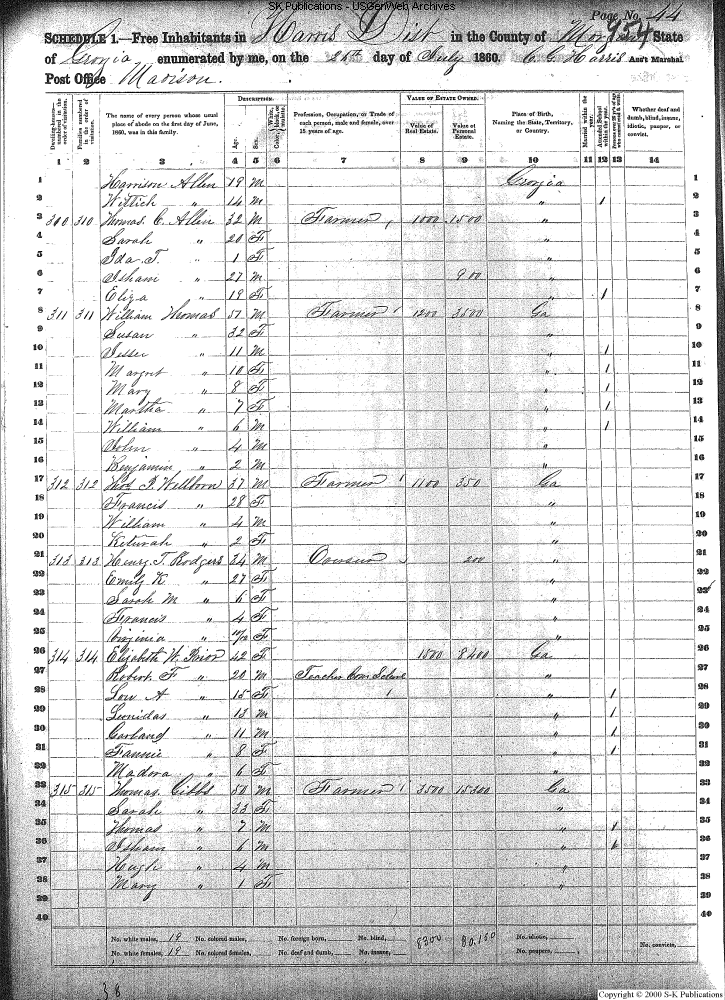 SK Publications - USGenWeb Archives
Page No. 44
954
SCHEDULE 1.—Free Inhabitants in Harris Dist in the County of Morgan State
of Georgia enumerated by me, on the 26th day of July 1860. C. G. Harris Ass't Marshal
Post Office Madison.
Dwelling-houses—numbered in the order of visitation.
Families numbered in the order of visitation.
The name of every person whose usual place of abode on the first day of June, 1860, was in this family.
DESCRIPTION.
Age.
Sex.
Color, White, black, or mulatto.
Profession, Occupation, or Trade of each person, male and female, over 15 years of age.
VALUE OF ESTATE OWNED.
Value of Real Estate.
Value of Personal Estate.
Place of Birth, Naming the State, Territory, or Country.
Married within the year.
Attended School within the year.
Persons over 20 y'rs of age who cannot read & write.
Whether deaf and dumb, blind, insane, idiotic, pauper, or convict.
1 2 3 4 5 6 7 8 9 10 11 12 13 14
1 Harrison Allen 19 M Georgia 1
2 " 14 M " 1 2
3 310 310 Thomas. C. Allen 32 M Farmer 1000 1500 " 3
4 Sarah " 20 F " 4
5 Ida. T. " 1 F " 5
6 Isham " 27 M 900 " 6
7 Eliza " 19 F " 1 7
8 311 311 William Thomas 51 M Farmer 1200 3500 Ga 8
9 Susan " 32 F " 9
10 Jesse " 11 M " 1 10
11 Margret " 10 F " 1 11
12 Mary " 8 F " 1 12
13 Martha " 7 F " 1 13
14 William " 6 M " 1 14
15 John " 4 M " 15
16 Benjamin " 2 M " 16
17 312 312 Thos P. Wellborn 37 M Farmer 1100 350 Ga 17
18 Francis " 28 F " 18
19 William " 4 M " 19
20 Keturah " 2 F " 20
21 313 313 Henry. T. Rodgers 34 M 200 " 21
22 Emily K " 27 F " 22
23 Sarah M " 6 F " 23
24 Francis " 4 F " 24
25 Virginia " F " 25
26 314 314 Elizabeth W. Prior 42 F 1500 8400 Ga 26
27 Robert F " 20 M Teacher Com School " 27
28 Lou A " 15 F " 1 28
29 Leonidas " 13 M " 1 29
30 Garland " 11 M " 1 30
31 Fannie " 8 F " 1 31
32 Madora " 6 F " 32
33 315 315 Thomas Gibbs 50 M Farmer 3500 15300 Ga 33
34 Sarah " 33 F " 34
35 Thomas " 7 M " 1 35
36 Isham " 6 M " 1 36
37 Hugh " 4 M " 37
38 Mary " 1 F " 38
39 39
40 40
No. white males, 19 No. colored males, No. foreign born, No. blind, 8300 No. idiotic,
No. white females, 19 No. colored females, No. deaf and dumb, No. insane, No. paupers, No. convicts,
38
Copyright © 2000 S-K Publications